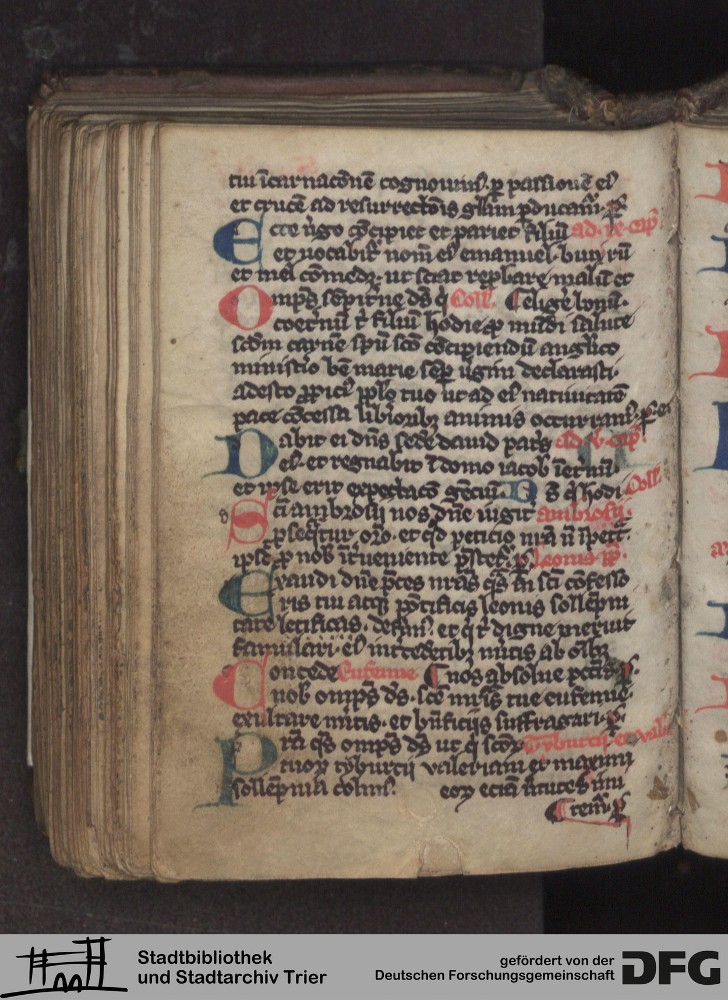 tui īcarnacōnē cognouimꝰ. ꝑ passionē eiꝰ
et crucē ad resurrectōis gl̄iam ꝑducam᷒. ꝑ
Ecce v̓go cōcipiet et pariet filiū ad. ix. cap̄
et uocabit᷒ nom̄ eiꝰ emanuel. butyrū
et mel comedꝫ. ut sciat rep̄bare malū et
Omp̄s sēpit̓ne ds̄ q̓ Coll̄. ¶ elig̓e bonū.
coet̓nū t̓ filiū hodie ꝓ mūdi salute
scdm̄ carnē spū sc̄o cōcipiendū anglico
minist̓io bē marie sēꝑ v̓gīis declarasti.
adesto ꝓpiciꝰ ppl̄o tuo ut ad eiꝰ natiuitatē
pace cōcessa libioribꝫ animis occurramꝰ. ꝑ eū
Dabit ei dn̄s sedē dauid patris ad v. cap̄.
eiꝰ. et regnabit ī domo iacob īet̓nū.
et ip̄se erit expectacō genciū. Ds̄ q̓ hodi Coll̄.
Sc̄i ambrosii nos dn̄e iugit᷒ ambrosii.
ꝓseq̄tur or̄o. et qd̄ peticio nr̄a n̄ īpet᷒.
ip̄se ꝓ nob̄ īt̓ueniente p̄stet᷒. ꝑ Leonis pp̄.
Exaudi dn̄e p̄ces nr̄as qs̄ in sc̄i cōfesso
ris tui atqꝫ pōtificis leonis sollēpni
tate
famulari. eiꝰ int̓cedētibꝫ mitis ab oīb̄
Concede Eufemie ¶ nos absolue pctīs. ꝑ.
nob̄ omp̄s ds̄. sc̄e mr̄is tue eufemie.
exultare m̓itis. et bn̄ficiis suffragari. ꝑ.
Pr̄a qs̄ omp̄s ds̄ ut q̓ sc̄oꝝ Tyburcii et vale̓
tuoꝝ tyburcii valeriani et maximi
sollēpnia colimꝰ. eoꝝ eciā v̓tutes imi
¶ temꝰ. ꝑ
Stadtbibliothek
und Stadtarchiv Trier
gefördert von der
Deutschen Forschungsgemeinschaft
DFG